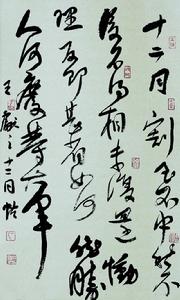 十二月割至不中秋不
復不得相未復還慟
理為即甚省如何然勝
人何慶等大軍
王獻之十二月帖